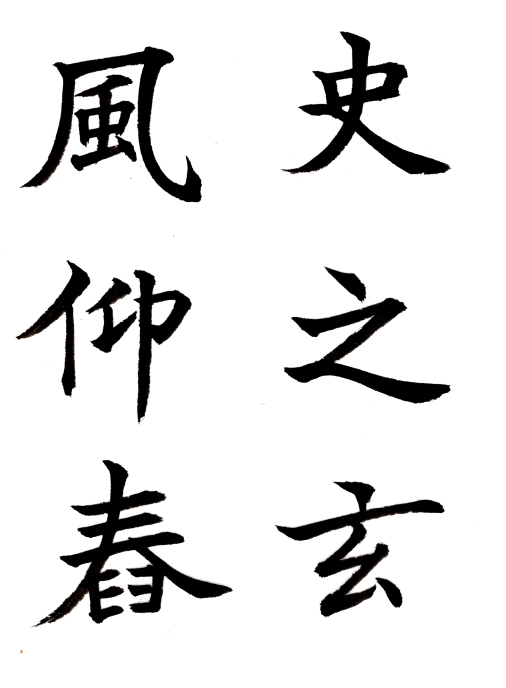 史之玄
風仰舂